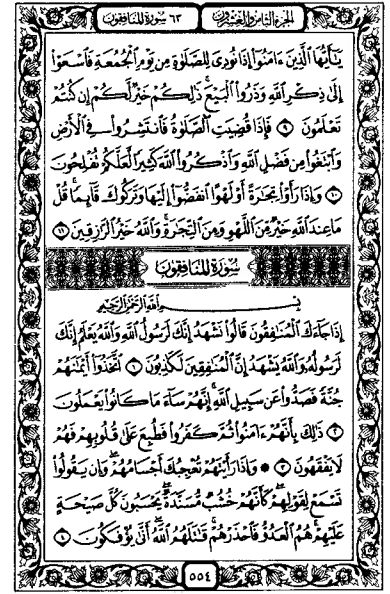 الجزء الثامن والعشرون ٦٣ سورة المنافقون
يَـٰٓأَيُّهَا ٱلَّذِينَ ءَامَنُوٓا۟ إِذَا نُودِىَ لِلصَّلَوٰةِ مِن يَوْمِ ٱلْجُمُعَةِ فَٱسْعَوْا۟
إِلَىٰ ذِكْرِ ٱللَّهِ وَذَرُوا۟ ٱلْبَيْعَ ۚ ذَٰلِكُمْ خَيْرٌ لَّكُمْ إِن كُنتُمْ
تَعْلَمُونَ ٩ فَإِذَا قُضِيَتِ ٱلصَّلَوٰةُ فَٱنتَشِرُوا۟ فِى ٱلْأَرْضِ
وَٱبْتَغُوا۟ مِن فَضْلِ ٱللَّهِ وَٱذْكُرُوا۟ ٱللَّهَ كَثِيرًا لَّعَلَّكُمْ تُفْلِحُونَ
١٠ وَإِذَا رَأَوْا۟ تِجَـٰرَةً أَوْ لَهْوًا ٱنفَضُّوٓا۟ إِلَيْهَا وَتَرَكُوكَ قَآئِمًا ۚ قُلْ
مَا عِندَ ٱللَّهِ خَيْرٌ مِّنَ ٱللَّهْوِ وَمِنَ ٱلتِّجَـٰرَةِ ۚ وَٱللَّهُ خَيْرُ ٱلرَّٰزِقِينَ ١١
سورة المنافقون
بِسْمِ ٱللَّهِ ٱلرَّحْمَـٰنِ ٱلرَّحِيمِ
إِذَا جَآءَكَ ٱلْمُنَـٰفِقُونَ قَالُوا۟ نَشْهَدُ إِنَّكَ لَرَسُولُ ٱللَّهِ ۗ وَٱللَّهُ يَعْلَمُ إِنَّكَ
لَرَسُولُهُۥ وَٱللَّهُ يَشْهَدُ إِنَّ ٱلْمُنَـٰفِقِينَ لَكَـٰذِبُونَ ١ ٱتَّخَذُوٓا۟ أَيْمَـٰنَهُمْ
جُنَّةً فَصَدُّوا۟ عَن سَبِيلِ ٱللَّهِ ۚ إِنَّهُمْ سَآءَ مَا كَانُوا۟ يَعْمَلُونَ
٢ ذَٰلِكَ بِأَنَّهُمْ ءَامَنُوا۟ ثُمَّ كَفَرُوا۟ فَطُبِعَ عَلَىٰ قُلُوبِهِمْ فَهُمْ
لَا يَفْقَهُونَ ٣ ۞ وَإِذَا رَأَيْتَهُمْ تُعْجِبُكَ أَجْسَامُهُمْ ۖ وَإِن يَقُولُوا۟
تَسْمَعْ لِقَوْلِهِمْ ۖ كَأَنَّهُمْ خُشُبٌ مُّسَنَّدَةٌ ۖ يَحْسَبُونَ كُلَّ صَيْحَةٍ
عَلَيْهِمْ ۚ هُمُ ٱلْعَدُوُّ فَٱحْذَرْهُمْ ۚ قَـٰتَلَهُمُ ٱللَّهُ ۖ أَنَّىٰ يُؤْفَكُونَ ٤
٥٥٤